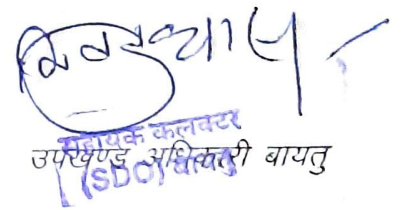 सहायक कलक्टर
उपखण्ड अधिकारी बायतु
(SDO) बायतु